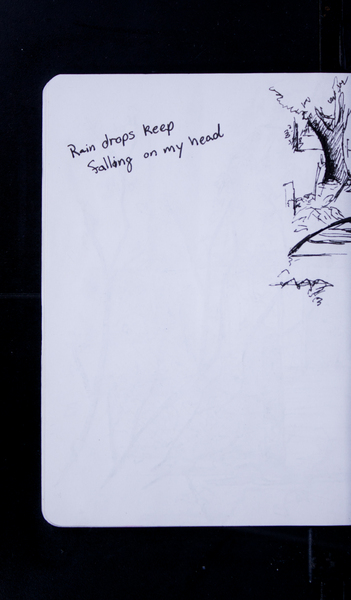 Rain drops keep
falling on my head